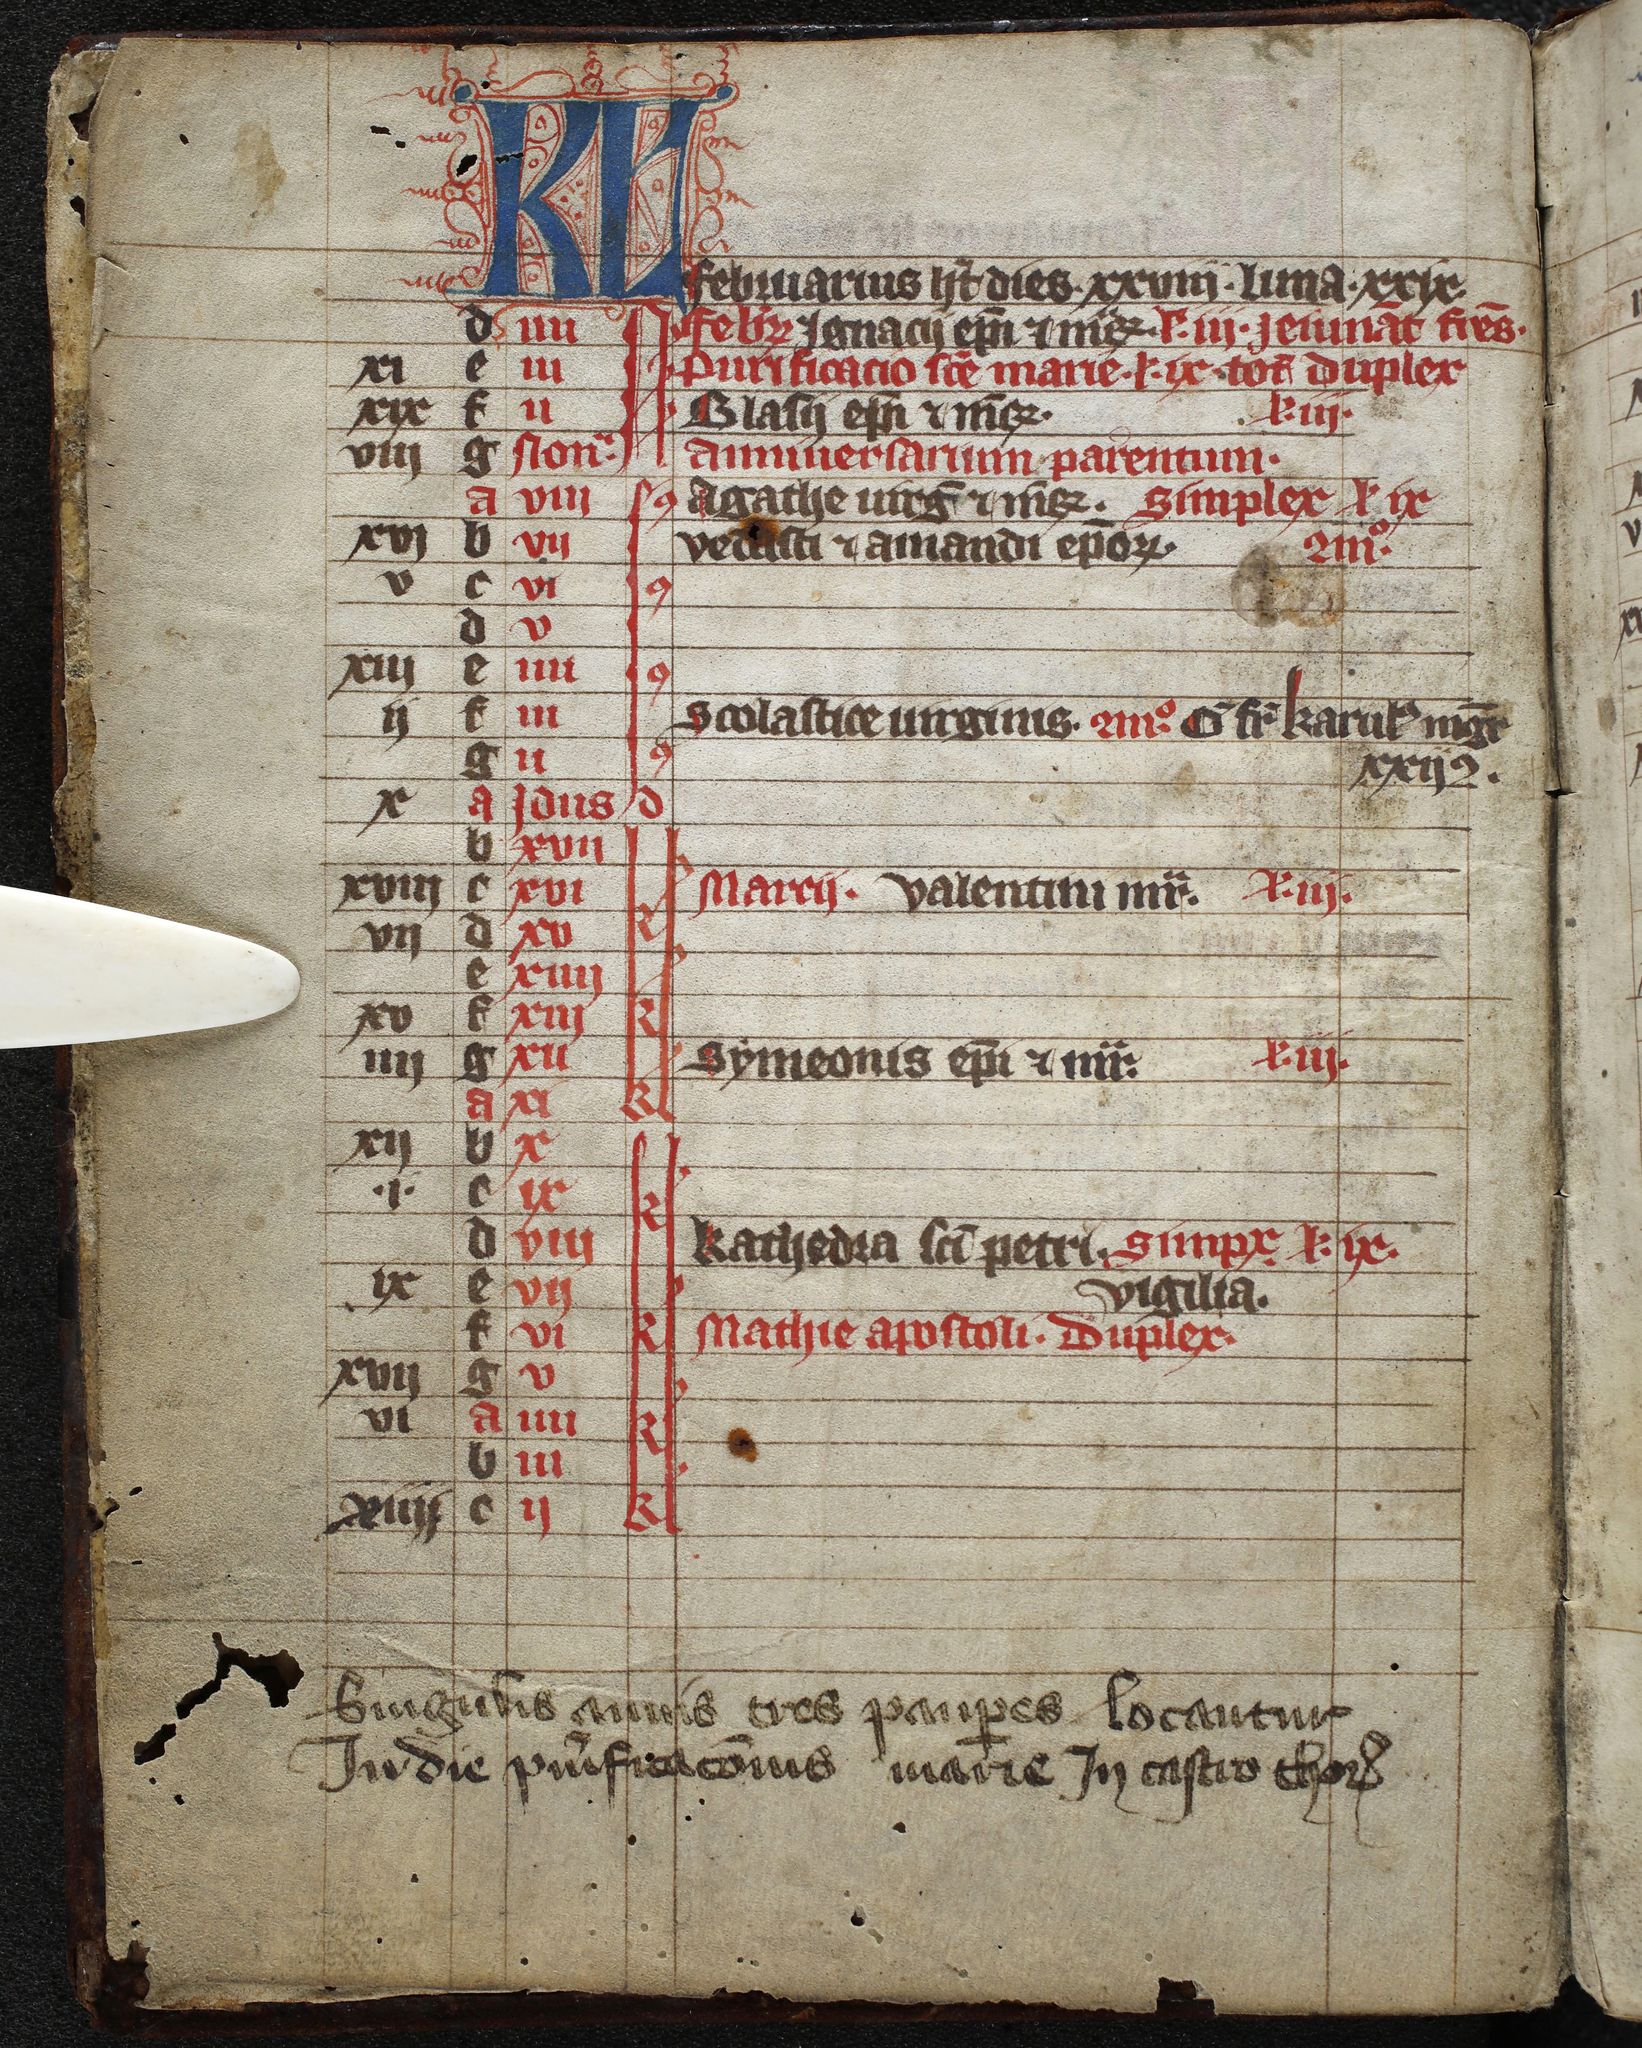 KL
februarius ht dies. xxviii. luna. xxix.
d iiii febr Ignacij epi & mr. l. iii. Jeiunat fres.
xi e iii Purificacio sce marie. l. ix. tot duplex
xix f ii Blasij epi & mr. l. iii.
viii g Non. anniuersarium parentum.
a viii Agathe uirg & mr. Simplex l ix
xvi b vii vedasti & amandi epor.
v c vi
d v
xiii e iiii
ij f iii Scolastice uirginis.
g ii
x a Jdus
b xvii
xviii c xvi Marcij. Valentini mr. l. iii.
vii d xv
e xiiii
xv f xiii
iiii g xii Symeonis epi & mr. l. iii.
a xi
xii b x
.i. c ix
d viii kathedra sci petri. Simpx. l. ix.
ix e vii vigilia.
f vi Mathie apostoli. Duplex.
xvii g v
vi a iiii
b iii
xiiii c ij
Singulis annis tres pauperes locantur
In die purificaconis marie In castro thor